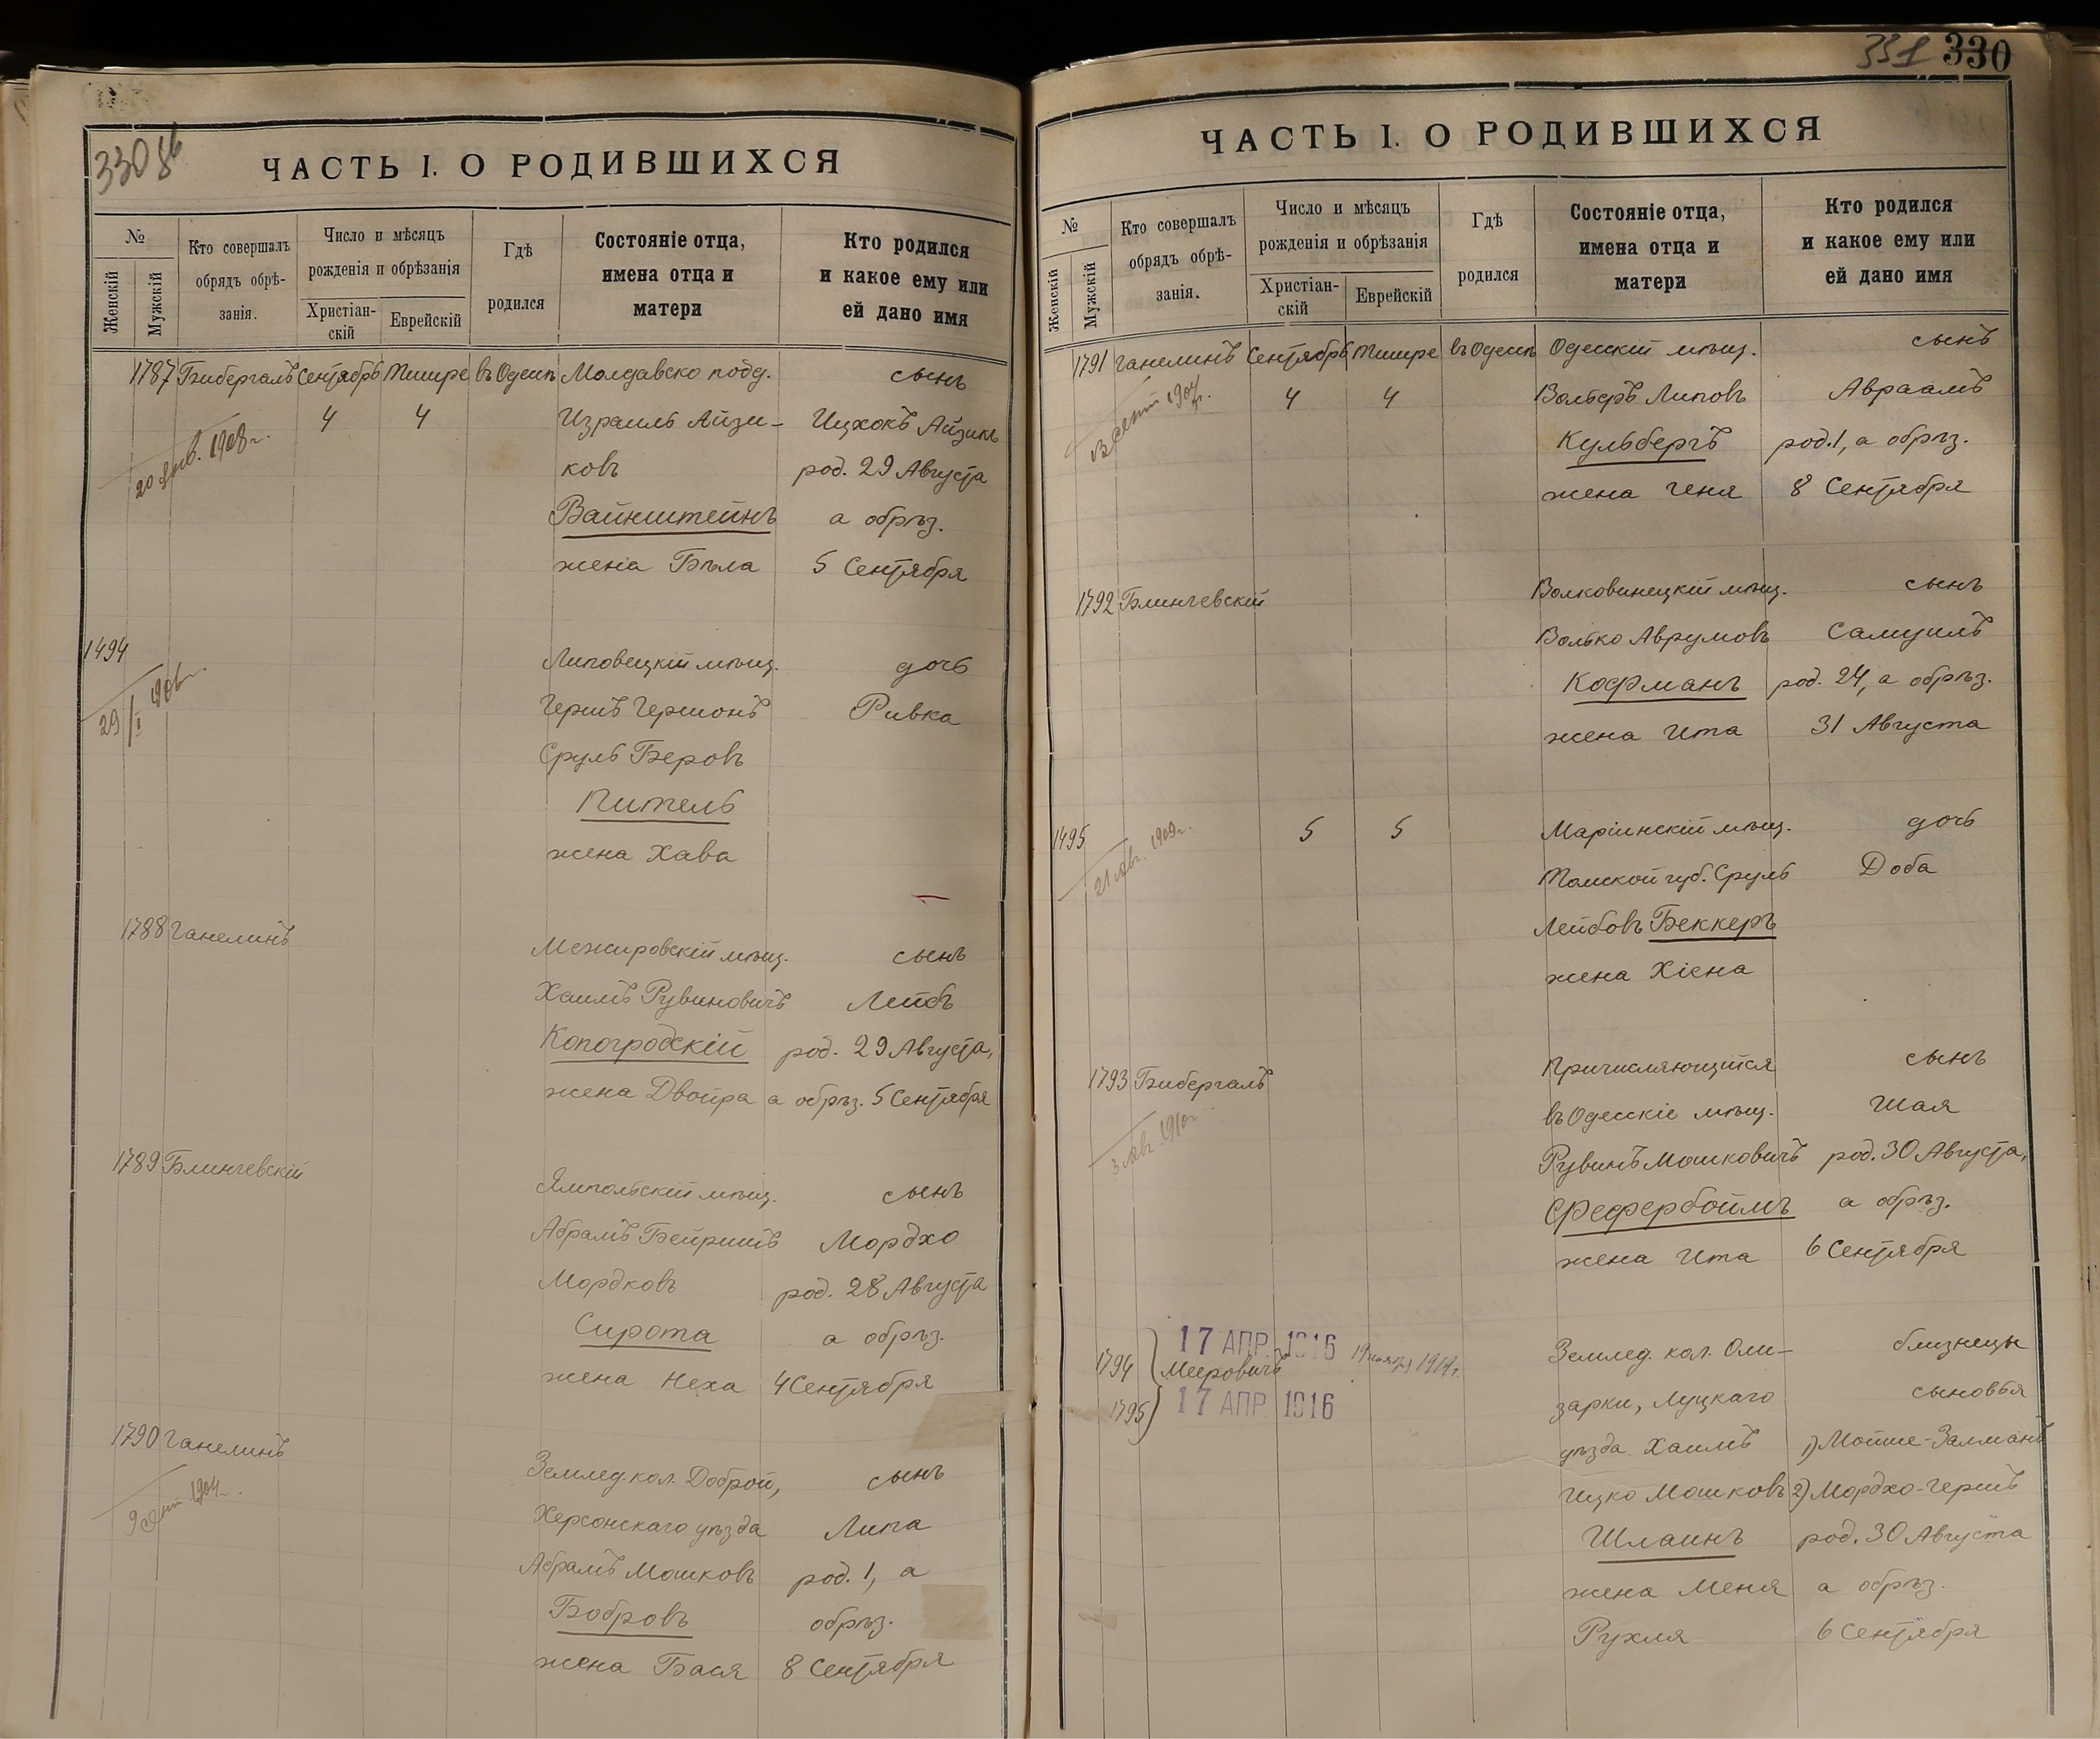 330 об
ЧАСТЬ I. О РОДИВШИХСЯ
№
Женскій
Мужскій
Кто совершалъ
обрядъ обрѣ-
занія.
Число и мѣсяцъ
рожденія и обрѣзанія
Христіан-
скій
Еврейскій
Гдѣ
родился
Состояніе отца,
имена отца и
матери
Кто родился
и какое ему или
ей дано имя
1787 Бибергалъ Сентябрь Тишре въ Одессѣ Молдавско подд. сынъ
4 4 Израиль Айзи- Ицхокъ Айзикъ
20 янв. 1908 г.
ковъ род. 29 Августа
Вайнштейнъ а обрѣз.
жена Бѣла 5 Сентября
1494 Липовецкій мѣщ. дочь
29/I
Гершъ Гершонъ Ривка
Сруль Беровъ
Кительъ
жена Хава
1788 Ганелинъ Межировскій мѣщ. сынъ
Хаимъ Рувиновичъ Лейбъ
Копогродскій род. 29 Августа,
жена Двойра а обрѣз. 5 Сентября
1789 Блинчевскій Ямпольскій мѣщ. сынъ
Абрамъ Бейришъ Мордхо
Мордковъ род. 28 Августа
Сирота а обрѣз.
жена Неха 4 Сентября
1790 Ганелинъ Землед. кол. Доброй, сынъ
9 сент 1904 г.
Херсонскаго уѣзда Липа
Абрамъ Мошковъ род. 1, а
Бобровъ обрѣз.
жена Бася 8 Сентября
331 330
ЧАСТЬ I. О РОДИВШИХСЯ
№
Женскій
Мужскій
Кто совершалъ
обрядъ обрѣ-
занія.
Число и мѣсяцъ
рожденія и обрѣзанія
Христіан-
скій
Еврейскій
Гдѣ
родился
Состояніе отца,
имена отца и
матери
Кто родился
и какое ему или
ей дано имя
1791 Ганелинъ Сентябрь Тишре въ Одессѣ Одесскій мѣщ. сынъ
4 4 Вольфъ Липовъ Авраамъ
сент 1904 г.
Кульбергъ род. 1, а обрѣз.
жена Геня 8 Сентября
1792 Блинчевскій Волковинецкій мѣщ. сынъ
Волько Аврумовъ Самуилъ
Кофманъ род. 24, а обрѣз.
жена Ита 31 Августа
1495 5 5 Маріинскій мѣщ. дочь
21 авг. 1909 г.
Томской губ. Сруль Доба
Лейбовъ Беккеръ
жена Хіена
1793 Бибергалъ Причисляющійся сынъ
3 авг. 1910 г.
въ Одесскіе мѣщ. Шая
Рувинъ Мошковичъ род. 30 Августа,
Фефербоймъ а обрѣз.
жена Ита 6 Сентября
17 АПР. 1916
1794 Мееровичъ Землед. кол. Оли- близнецы
1795 17 АПР. 1916 зарки, Луцкаго сыновья
уѣзда Хаимъ 1) Мойше-Залманъ
Ицко Мошковъ 2) Мордхо-Гершъ
Шлаинъ род. 30 Августа
жена Меня а обрѣз.
Рухля 6 Сентября